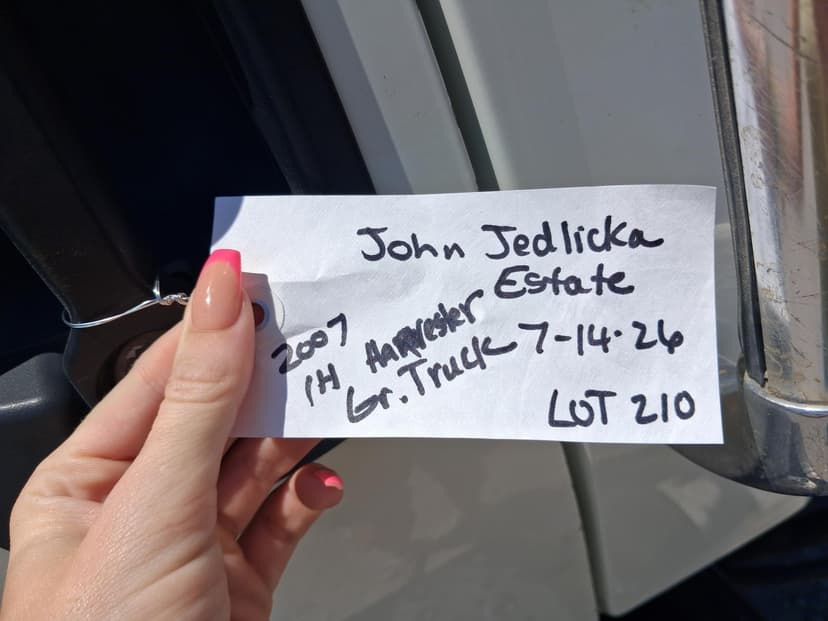 John Jedlicka
Estate
2007
IH Harvester
Gr. Truck
7-14-26
LOT 210